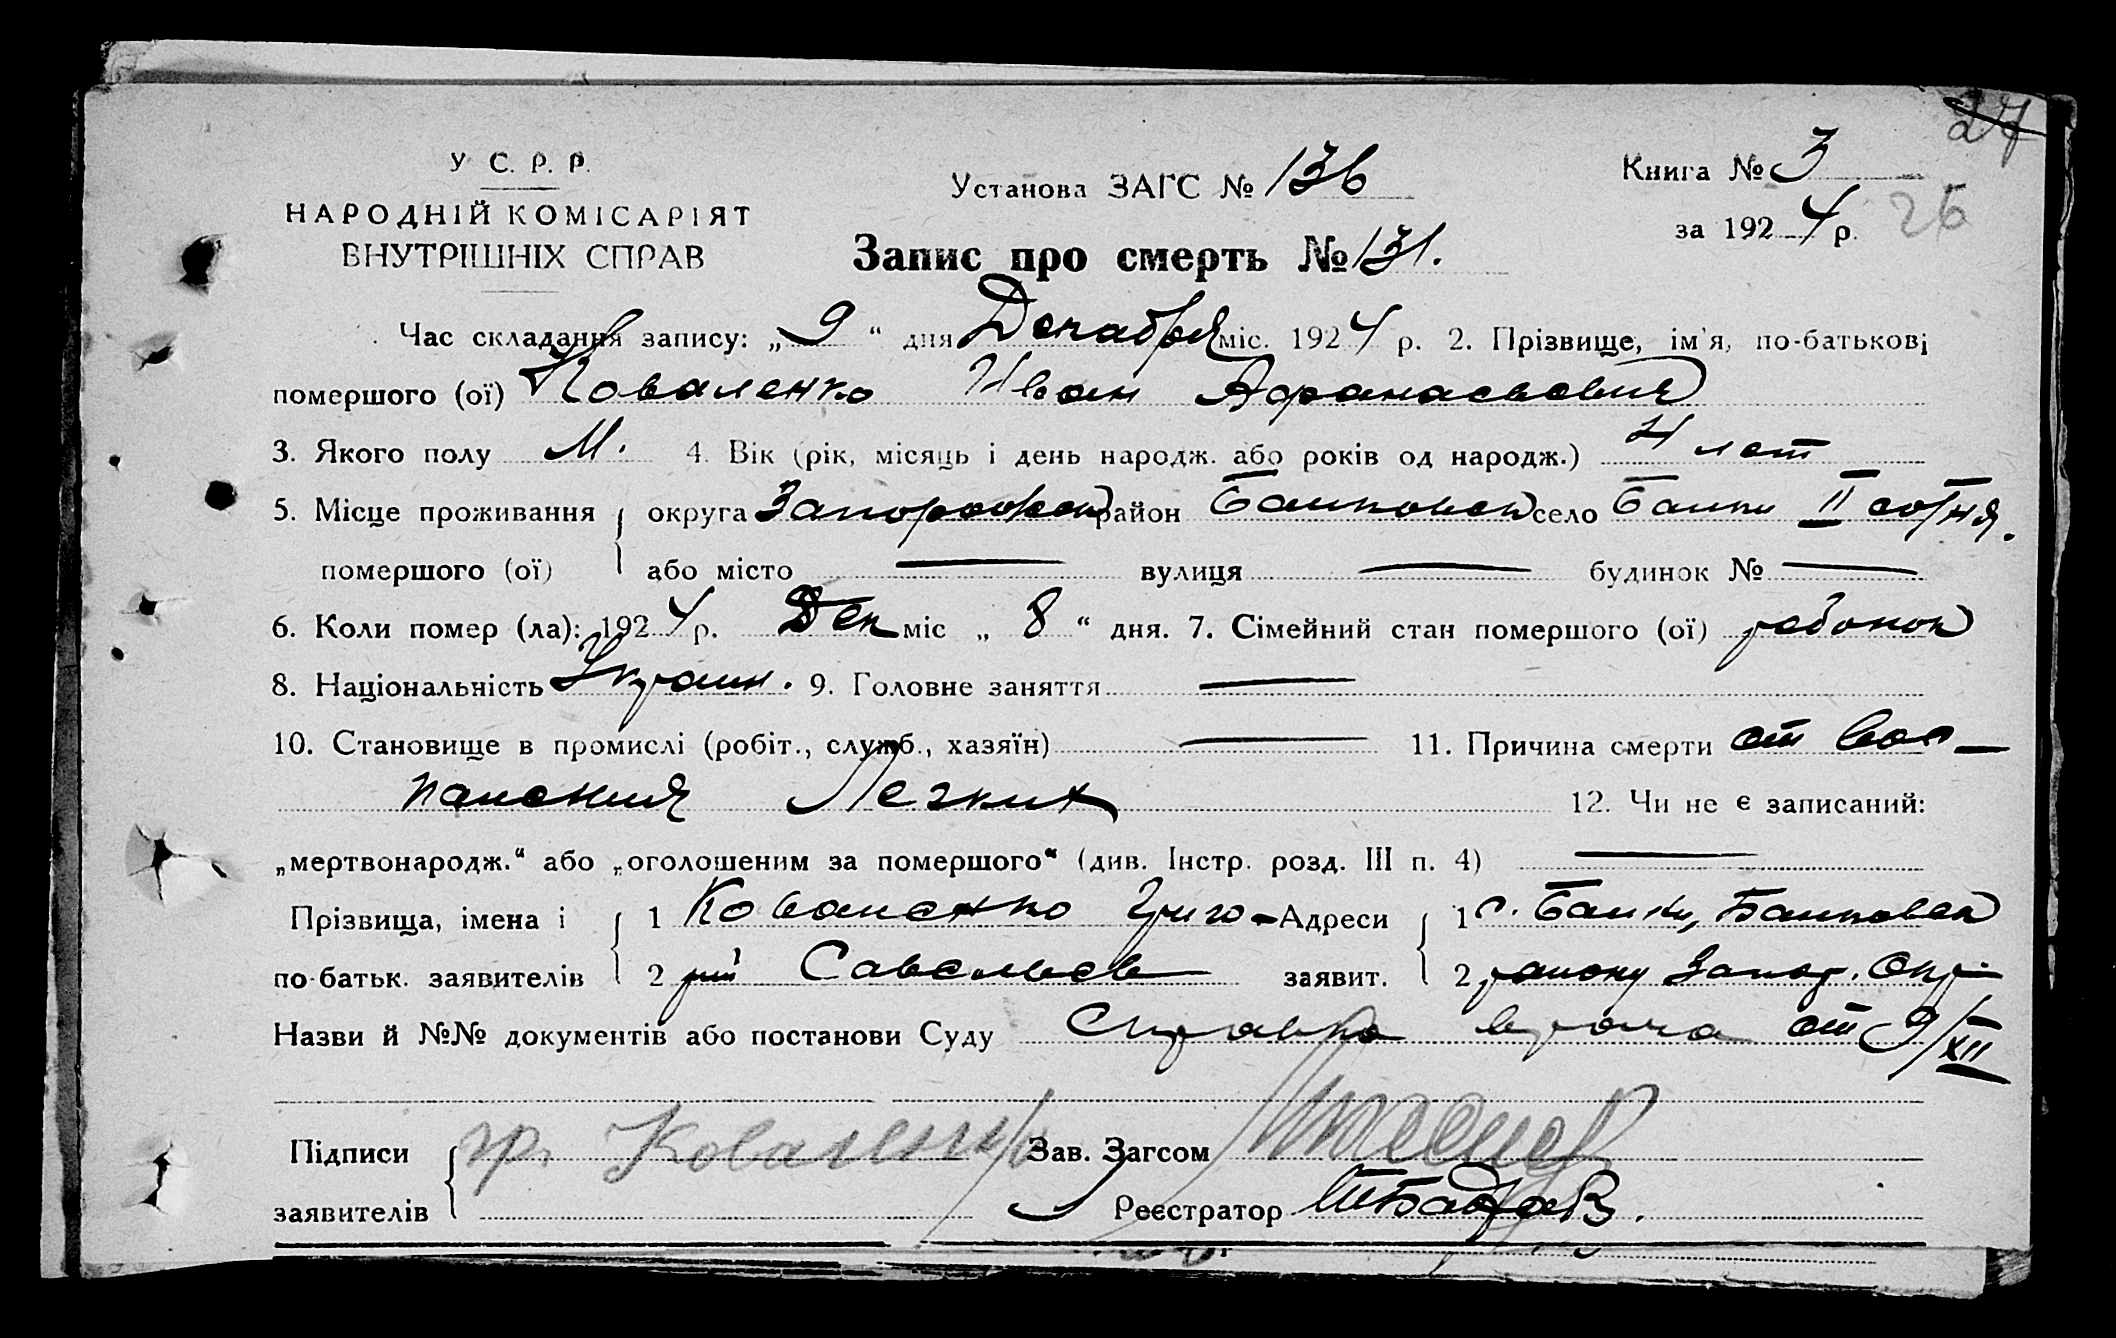 27
У С. Р. Р.
НАРОДНІЙ КОМІСАРІЯТ
ВНУТРІШНІХ СПРАВ
Установа ЗАГС № 136
Книга № 3
за 1924 р. 26
Запис про смерть № 131.
Час складання запису: „9“ дня Декабря міс. 1924 р. 2. Прізвище, ім'я, по-батькові
помершого (ої) Коваленко Иван Афанасьевич
3. Якого полу М. 4. Вік (рік, місяць і день народж. або років од народж.) 4 лет
5. Місце проживання округа Запорожск район Балковск село Балки II сотня.
помершого (ої) або місто — вулиця — будинок № —
6. Коли помер (ла): 1924 р. Дек міс „8“ дня. 7. Сімейний стан помершого (ої) ребенок
8. Національність Украин. 9. Головне заняття —
10. Становище в промислі (робіт., служб., хазяїн) — 11. Причина смерти от вос-
паления Легких 12. Чи не є записаний:
„мертвонародж.“ або „оголошеним за помершого“ (див. Інстр. розд. III п. 4) —
Прізвища, імена і 1 Коваленко Григо- Адреси 1 с. Балки, Балковск
по-батьк. заявителів 2 рий Савельев заявит. 2 району Запор. Окр.
Назви й №№ документів або постанови Суду Справка врача от 9/XII
Підписи гр. Коваленко Зав. Загсом
заявителів Реєстратор